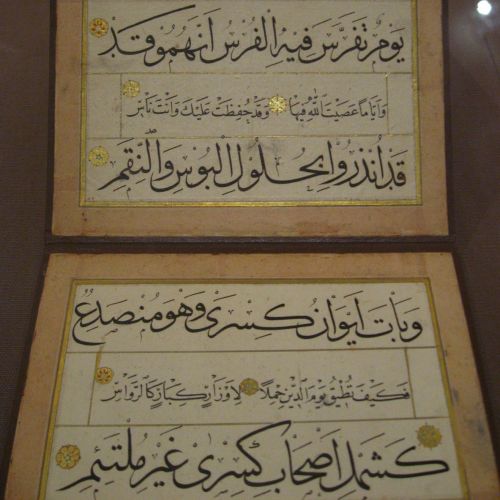 يَوْمٌ تَفَرَّسَ فِيهِ الْفُرْسُ اَنَّهُمُو قَدْ
وَاَيَّامًا عَصَيْتَ اللّٰهَ فِيهَا وَقَدْ حُفِظَتْ عَلَيْكَ وَاَنْتَ نَاسِ
قَدْ اُنْذِرُوا بِحُلُولِ الْبُوسِ وَالنِّقَمِ
وَبَاتَ اَيْوَانُ كِسْرٰى وَهُوَ مُنْصَدِعٌ
فَكَيْفَ تُطِيقُ يَوْمَ الدِّينِ حَمْلًا لِاَوْزَارٍ كِبَارٍ كَالرَّوَاسِ
كَشَمْلِ اَصْحَابِ كِسْرٰى غَيْرَ مُلْتَئِمِ